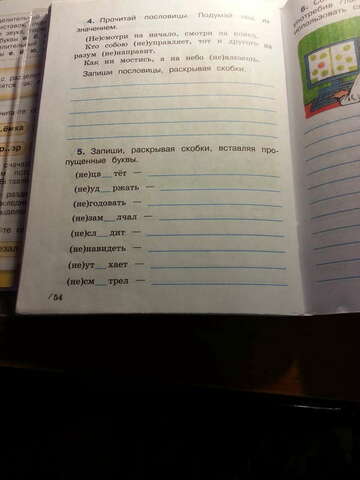 4. Прочитай пословицы. Подумай над их
значением.
(Не)смотри на начало, смотри на конец.
Кто собою (не)управляет, тот и другого на
разум (не)направит.
Как ни мостись, а на небо (не)влезешь.
Запиши пословицы, раскрывая скобки.
5. Запиши, раскрывая скобки, вставляя про-
пущенные буквы.
(не)цв__тёт —
(не)уд__ржать —
(не)годовать —
(не)зам__лчал —
(не)сл__дит —
(не)навидеть —
(не)ут__хает —
(не)см__трел —
54